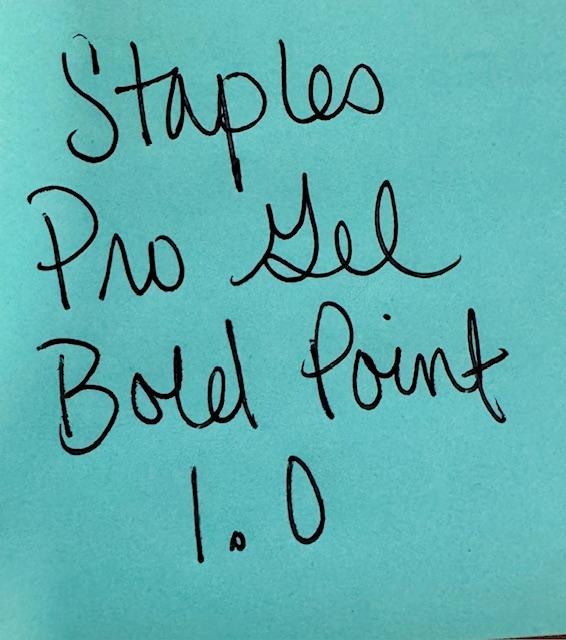 Staples
Pro Gel
Bold Point
1.0